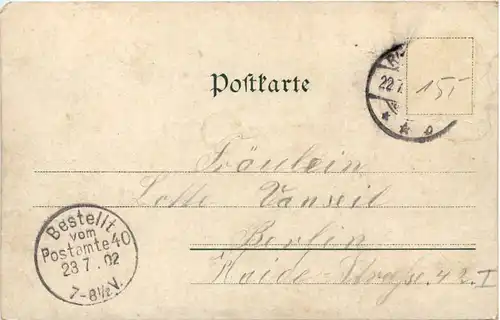 Postkarte
22.7.
155
Fräulein
Lotte Vanseil
Berlin
Haide-Straße 42 I
Bestellt
vom
Postamte 40
23 7. 02
7-8½V.